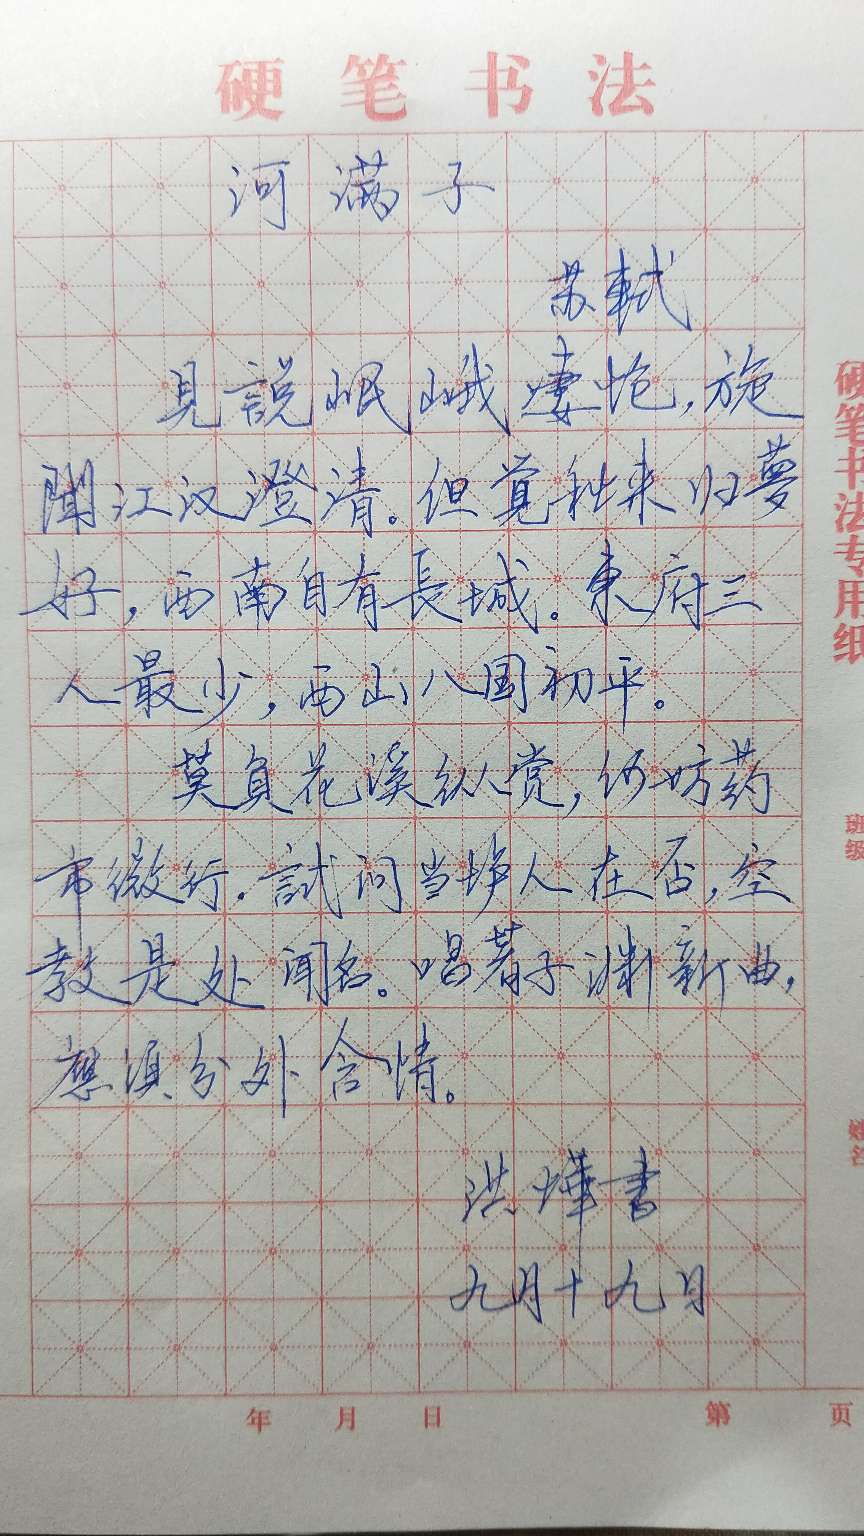 硬笔书法
河满子
苏軾
見說岷峨悽愴,旋
聞江汉澄清。但覚秋来归夢
好,西南自有長城。東府三
人最少,西山八国初平。
莫負花溪纵赏,何妨药
市微行。試问当垆人在否,空
教是处闻名。唱着子渊新曲,
應須分外含情。
洪燁書
九月十九日
年 月 日 第 页
硬笔书法专用纸
班级
姓名